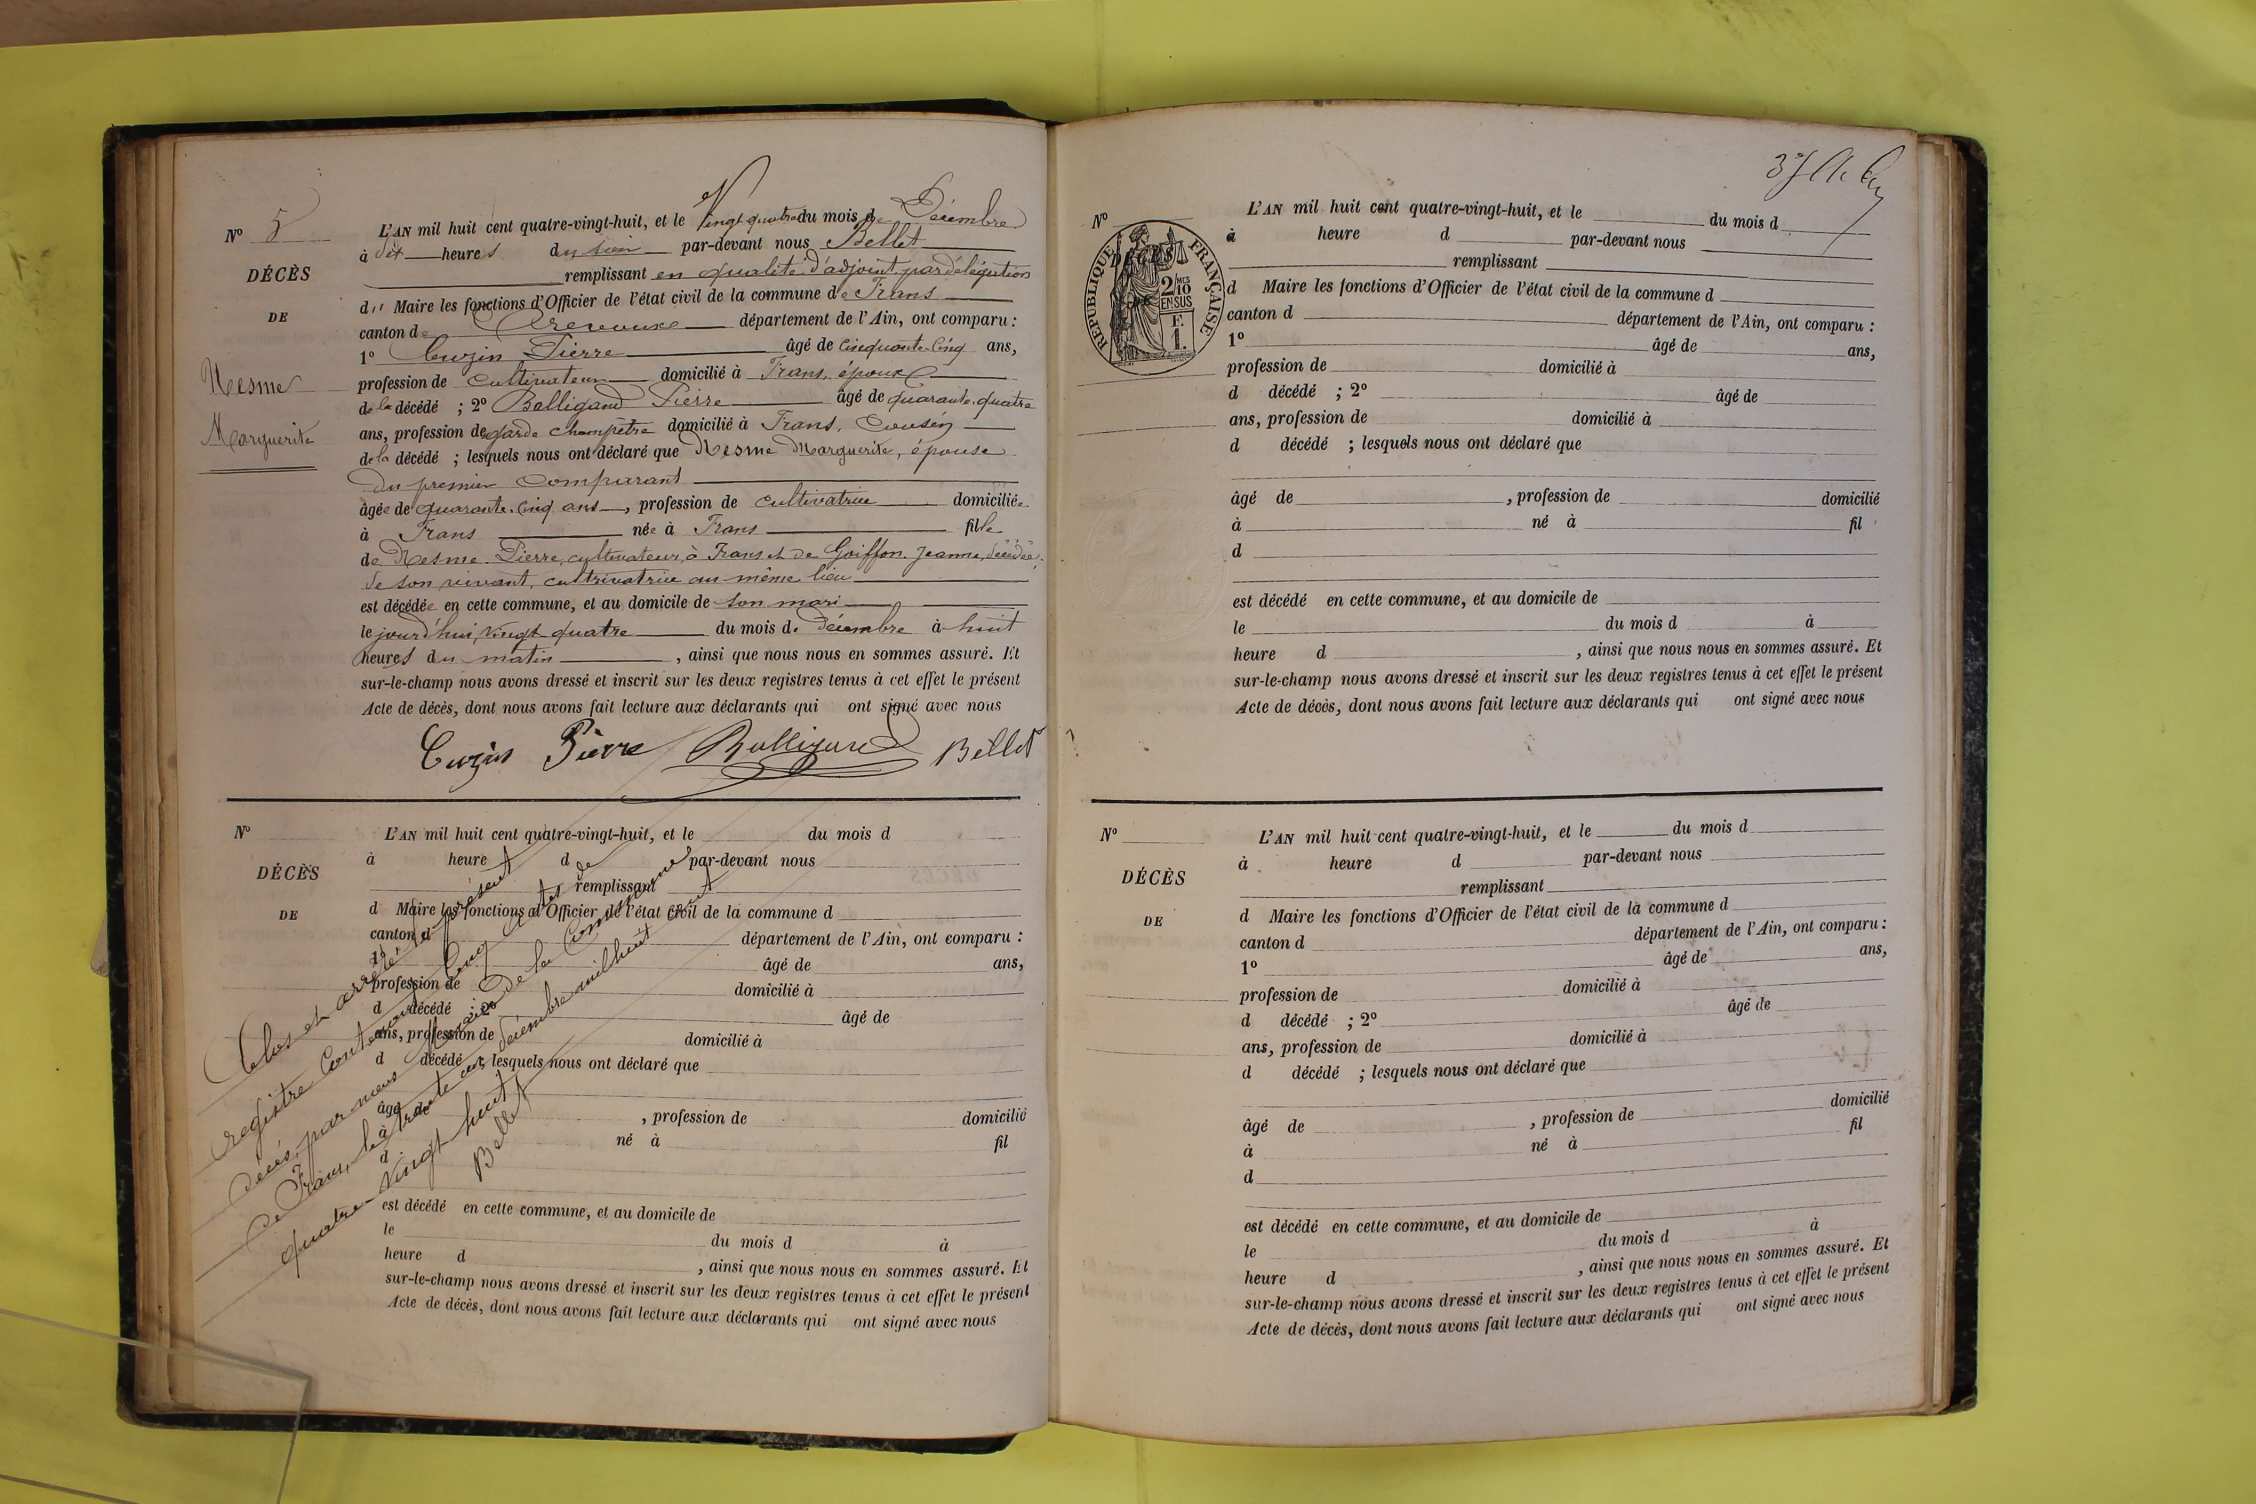 N° 5
DÉCÈS
DE
Nesme
Marguerite
L'AN mil huit cent quatre-vingt-huit, et le Vingt quatre du mois de Décembre
à dix heures du soir par-devant nous Bellet
remplissant en qualité d'adjoint par délégation
du Maire les fonctions d'Officier de l'état civil de la commune de Frans
canton de Trévoux département de l'Ain, ont comparu :
1° Cuzin Pierre âgé de cinquante-cinq ans,
profession de cultivateur domicilié à Frans, époux
de la décédé ; 2° Balligand Pierre âgé de quarante-quatre
ans, profession de garde champêtre domicilié à Frans, Cousin
de la décédé ; lesquels nous ont déclaré que Nesme Marguerite, épouse
du premier comparant
âgée de quarante-cinq ans, profession de cultivatrice domiciliée
à Frans née à Frans fille
de Nesme Pierre, cultivateur à Frans et de Goiffon Jeanne, décédée,
de son vivant, cultrivatrice au même lieu
est décédée en cette commune, et au domicile de son mari
le jourd'hui, vingt quatre du mois de décembre à huit
heures du matin, ainsi que nous nous en sommes assuré. Et
sur-le-champ nous avons dressé et inscrit sur les deux registres tenus à cet effet le présent
Acte de décès, dont nous avons fait lecture aux déclarants qui ont signé avec nous
Cuzin Pierre Balligand Bellet
N°
DÉCÈS
DE
L'AN mil huit cent quatre-vingt-huit, et le du mois d
à heure d par-devant nous
remplissant
d Maire les fonctions d'Officier de l'état civil de la commune d
canton d département de l'Ain, ont comparu :
1° âgé de ans,
profession de domicilié à
d décédé ; 2° âgé de
ans, profession de domicilié à
d décédé ; lesquels nous ont déclaré que
âgé de , profession de domicilié
à né à fil
d
est décédé en cette commune, et au domicile de
le du mois d à
heure d , ainsi que nous nous en sommes assuré. Et
sur-le-champ nous avons dressé et inscrit sur les deux registres tenus à cet effet le présent
Acte de décès, dont nous avons fait lecture aux déclarants qui ont signé avec nous
Clos et arrêté le présent
registre contenant Cinq actes de
décès, par nous Maire de la Commune
de Frans, le trente un décembre mil huit cent
quatre vingt huit
Bellet
N°
RÉPUBLIQUE FRANÇAISE
2/10 MES
EN SUS
F.
1.
L'AN mil huit cent quatre-vingt-huit, et le du mois d
à heure d par-devant nous
remplissant
d Maire les fonctions d'Officier de l'état civil de la commune d
canton d département de l'Ain, ont comparu :
1° âgé de ans,
profession de domicilié à
d décédé ; 2° âgé de
ans, profession de domicilié à
d décédé ; lesquels nous ont déclaré que
âgé de , profession de domicilié
à né à fil
d
est décédé en cette commune, et au domicile de
le du mois d à
heure d , ainsi que nous nous en sommes assuré. Et
sur-le-champ nous avons dressé et inscrit sur les deux registres tenus à cet effet le présent
Acte de décès, dont nous avons fait lecture aux déclarants qui ont signé avec nous
N°
DÉCÈS
DE
L'AN mil huit cent quatre-vingt-huit, et le du mois d
à heure d par-devant nous
remplissant
d Maire les fonctions d'Officier de l'état civil de la commune d
canton d département de l'Ain, ont comparu :
1° âgé de ans,
profession de domicilié à
d décédé ; 2° âgé de
ans, profession de domicilié à
d décédé ; lesquels nous ont déclaré que
âgé de , profession de domicilié
à né à fil
d
est décédé en cette commune, et au domicile de
le du mois d à
heure d , ainsi que nous nous en sommes assuré. Et
sur-le-champ nous avons dressé et inscrit sur les deux registres tenus à cet effet le présent
Acte de décès, dont nous avons fait lecture aux déclarants qui ont signé avec nous